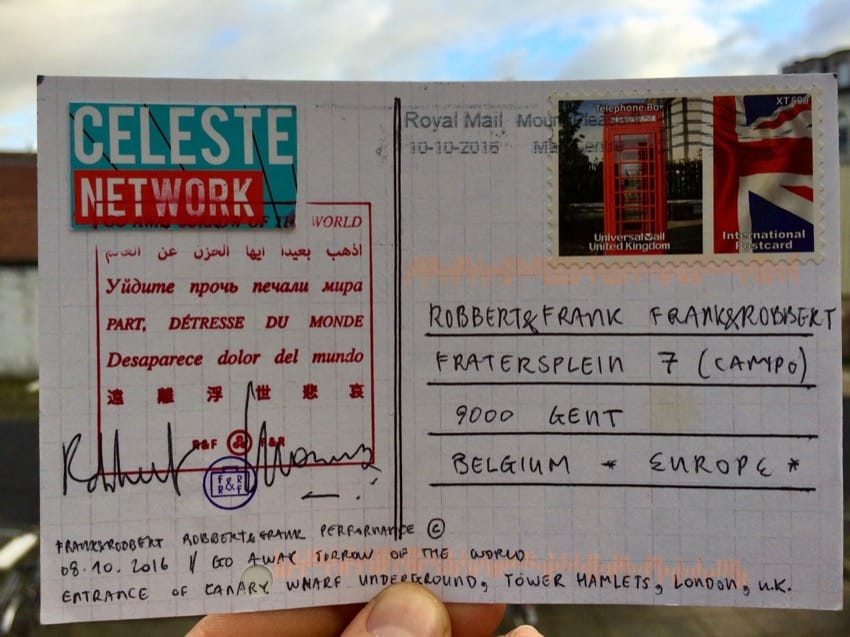 CELESTE
NETWORK
GO AWAY SORROW OF THE WORLD
اذهب بعيدا ايها الحزن عن العالم
Уйдите прочь печали мира
PART, DÉTRESSE DU MONDE
Desaparece dolor del mundo
遠離浮世悲哀
R&F F&R
F&R
R&F
Royal Mail Mount Pleasant
10-10-2016 Mail Centre
Telephone Box
UniversalMail
United Kingdom
XT500
International
Postcard
ROBBERT&FRANK FRANK&ROBBERT
FRATERSPLEIN 7 (CAMPO)
9000 GENT
BELGIUM * EUROPE *
FRANK&ROBBERT ROBBERT&FRANK PERFORMANCE ©
08.10.2016 // GO AWAY SORROW OF THE WORLD
ENTRANCE OF CANARY WHARF UNDERGROUND, TOWER HAMLETS, LONDON, U.K.